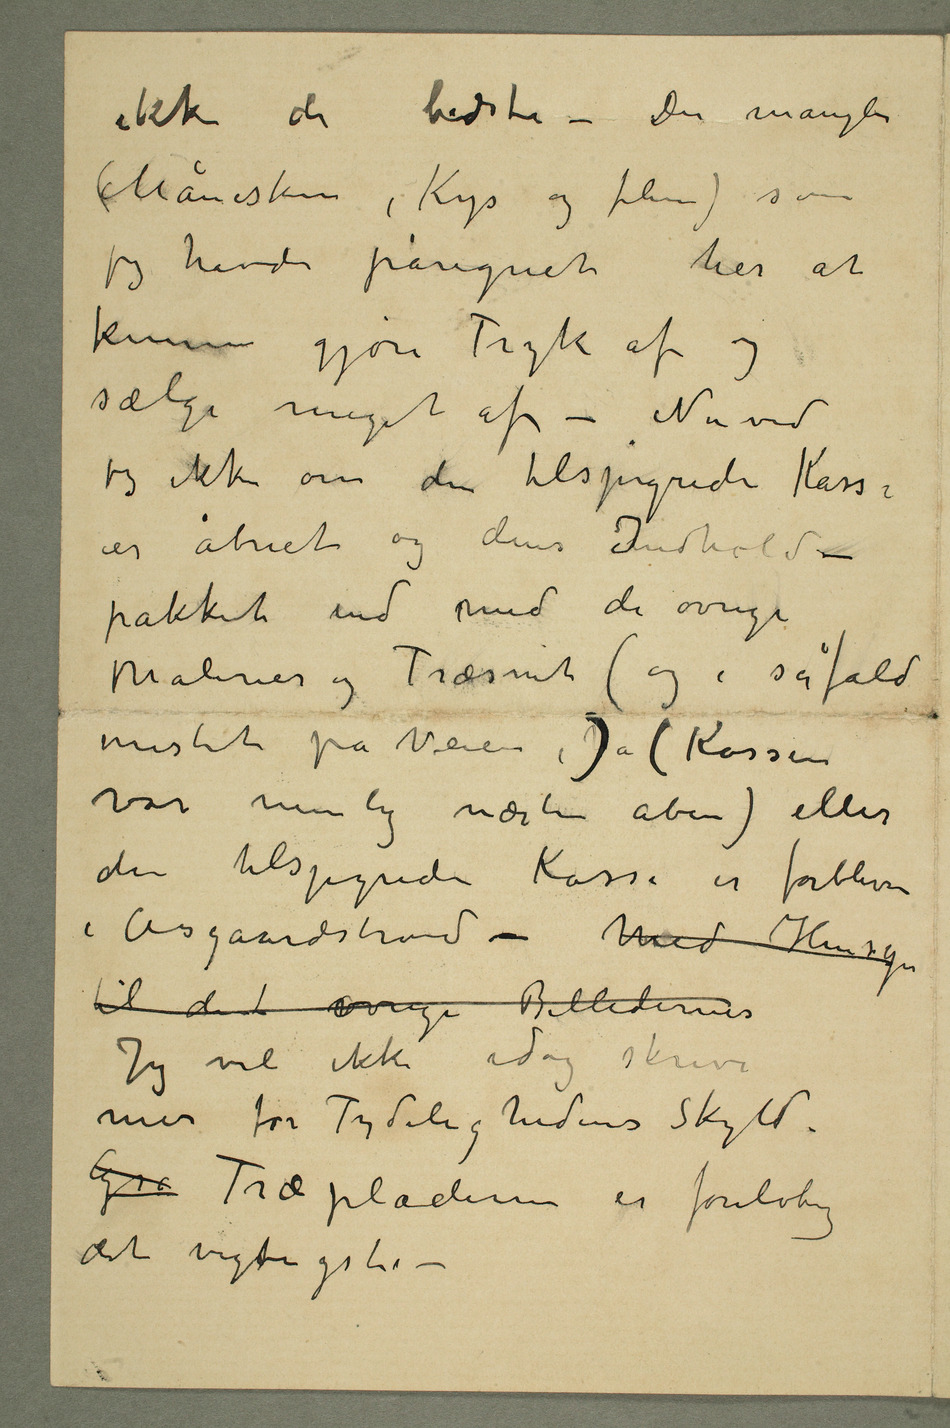 ikke de bedste – Der mangler
(Måneskin, Kys og flere) som
jeg havde påregnet her at
kunne gjøre Tryk af og
sælge meget af – Nu ved
jeg ikke om den tilspigrede Kasse
er åbnet og dens Indhold –
pakket ind med de øvrige
Malerier og Træsnit (og i såfald
mistet på Veien,) a (Kassen
var nemlig næsten aben) eller
den tilspigrede Kasse er forbleven
i Aasgaardstrand – Med Hensyn
til det øvrige Billedernes
Jeg vil ikke idag skrive
mer for Tydelighedens Skyld.
Træpladerne er foreløbig
det vigtigste –